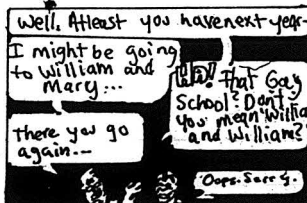 Well. Atleast you have next year-
I might be going
to William and
Mary...
HA! That Gay
School? Don't
you mean Willia
and Williams
there you go
again...
Oops. Sorry.